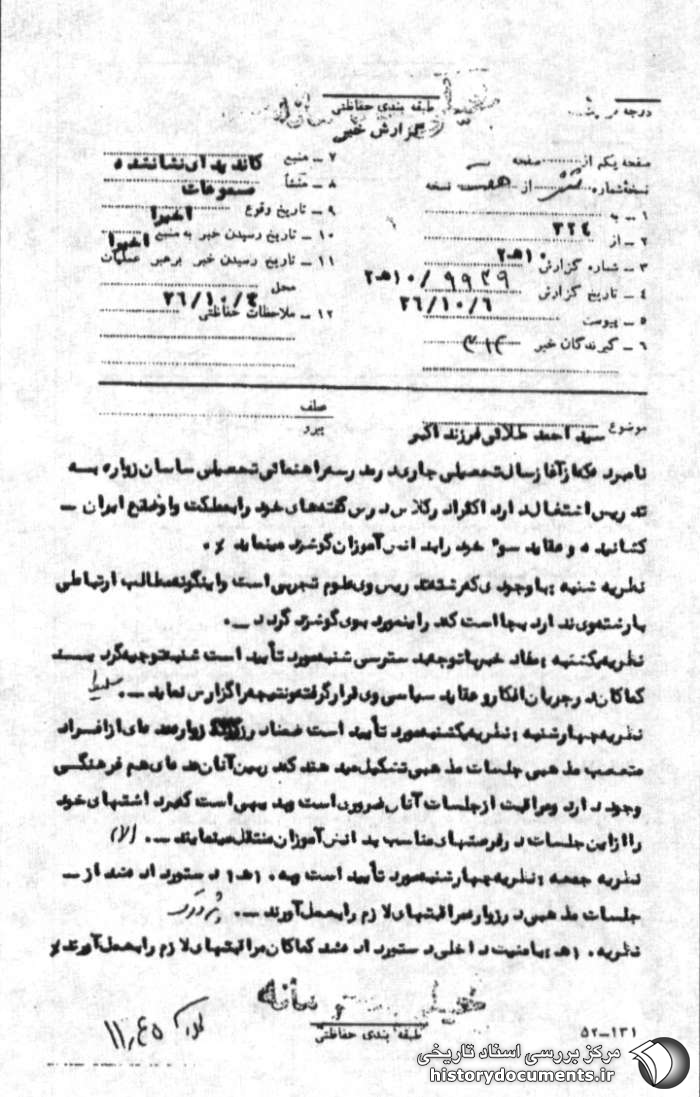 طبقه بندی حفاظتی
گزارش خبر
درجه
صفحه یکم از صفحه
نسخه شماره از هفت نسخه
۱ – به
۲ – از ۳۲٤
۳ – شماره گزارش ۱۰هـ۲
۱۰هـ۲ / ۹۹۴۹
٤ – تاریخ گزارش ۳۶/۱۰/۶
۵ – پیوست
۶ – گیرندگان خبر ۳۱۲
۷ – منبع کاندیدای نشانشده
۸ – منشأ مسموعات
۹ – تاریخ وقوع اخیرا
۱۰ – تاریخ رسیدن خبر به منبع اخیرا
۱۱ – تاریخ رسیدن خبر برهبر عملیات
محل ۳۶/۱۰/٤
۱۲ – ملاحظات حفاظتی
عطف
پیرو
موضوع سید احمد طلائی فرزند اکبر
نامبرده که از آغاز سال تحصیلی جاری در مدرسه راهنمائی تحصیلی ساسان زواره به
تدریس اشتغال دارد اکثرا در کلاس درس گفته های خود را به مملکت و اوضاع ایران –
کشانیده و عقاید سوء خود را بدانش آموزان گوشزد مینماید .
نظریه شنبه : با وجودی که رشته تدریس وی علوم تجربی است و اینگونه مطالب ارتباطی
با رشته وی ندارد بجا است که در اینمورد بوی گوشزد گردد – .
نظریه یکشنبه : مفاد خبر با توجه بدسترسی شنبه مورد تأیید است شنبه توجیه گردید
کماکان در جریان افکار و عقاید سیاسی وی قرار گرفته و نتیجه را گزارش نماید – .
نظریه چهارشنبه : نظریه یکشنبه مورد تأیید است ضمنا در زواره عده ای از افراد
متعصب مذهبی جلسات مذهبی تشکیل میدهند که در بین آنان عده ای هم فرهنگی
وجود دارد و مراقبت از جلسات آنان ضروری است و بدیهی است که برداشتهای خود
را از این جلسات در فرصتهای مناسب بدانش آموزان منتقل مینمایند – .
نظریه جمعه : نظریه چهارشنبه مورد تأیید است و به ۱هـ۱ دستور داده شد از –
جلسات مذهبی در زواره مراقبتهای لازم را بعمل آورند – .
نظریه ۱هـ : بامنیت داخلی دستور داده شد کماکان مراقبتهای لازم را بعمل آورند
خیلی محرمانه
طبقه بندی حفاظتی
۵۲–۱۳۱
۱۱٫۴۵
مرکز بررسی اسناد تاریخی
historydocuments.ir